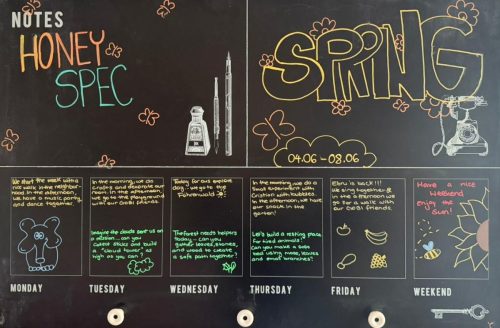 NOTES
HONEY
SPEC
SPRING
04.06 - 08.06
We start the week with a
nice walk in the neighbor-
hood. In the afternoon,
we have a music party
and dance together.
MONDAY
In the morning, we do
crafts and decorate our
room. In the afternoon,
we go to the playground
with our Geobi friends.
Imagine the clouds sent us on
a mission - can you
collect sticks and build
a "cloud tower" as
high as you can?
TUESDAY
Today for our explore
day - we go to the
Fuhrenwald
The forest needs helpers
today - can you
gather leaves, stones,
and wood to create
a safe path together?
WEDNESDAY
In the morning we do a
small experiment with
Cristian with bubbles.
In the afternoon, we have
our snack in the
garden!
Let's build a resting place
for tired animals!
Can you make a safe
bed using moss, leaves
and small branches?
THURSDAY
Ebru is back!!!
We sing together
in the afternoon we
go for a walk with
our Geobi friends.
FRIDAY
Have a nice
Weekend
enjoy the
Sun!
WEEKEND